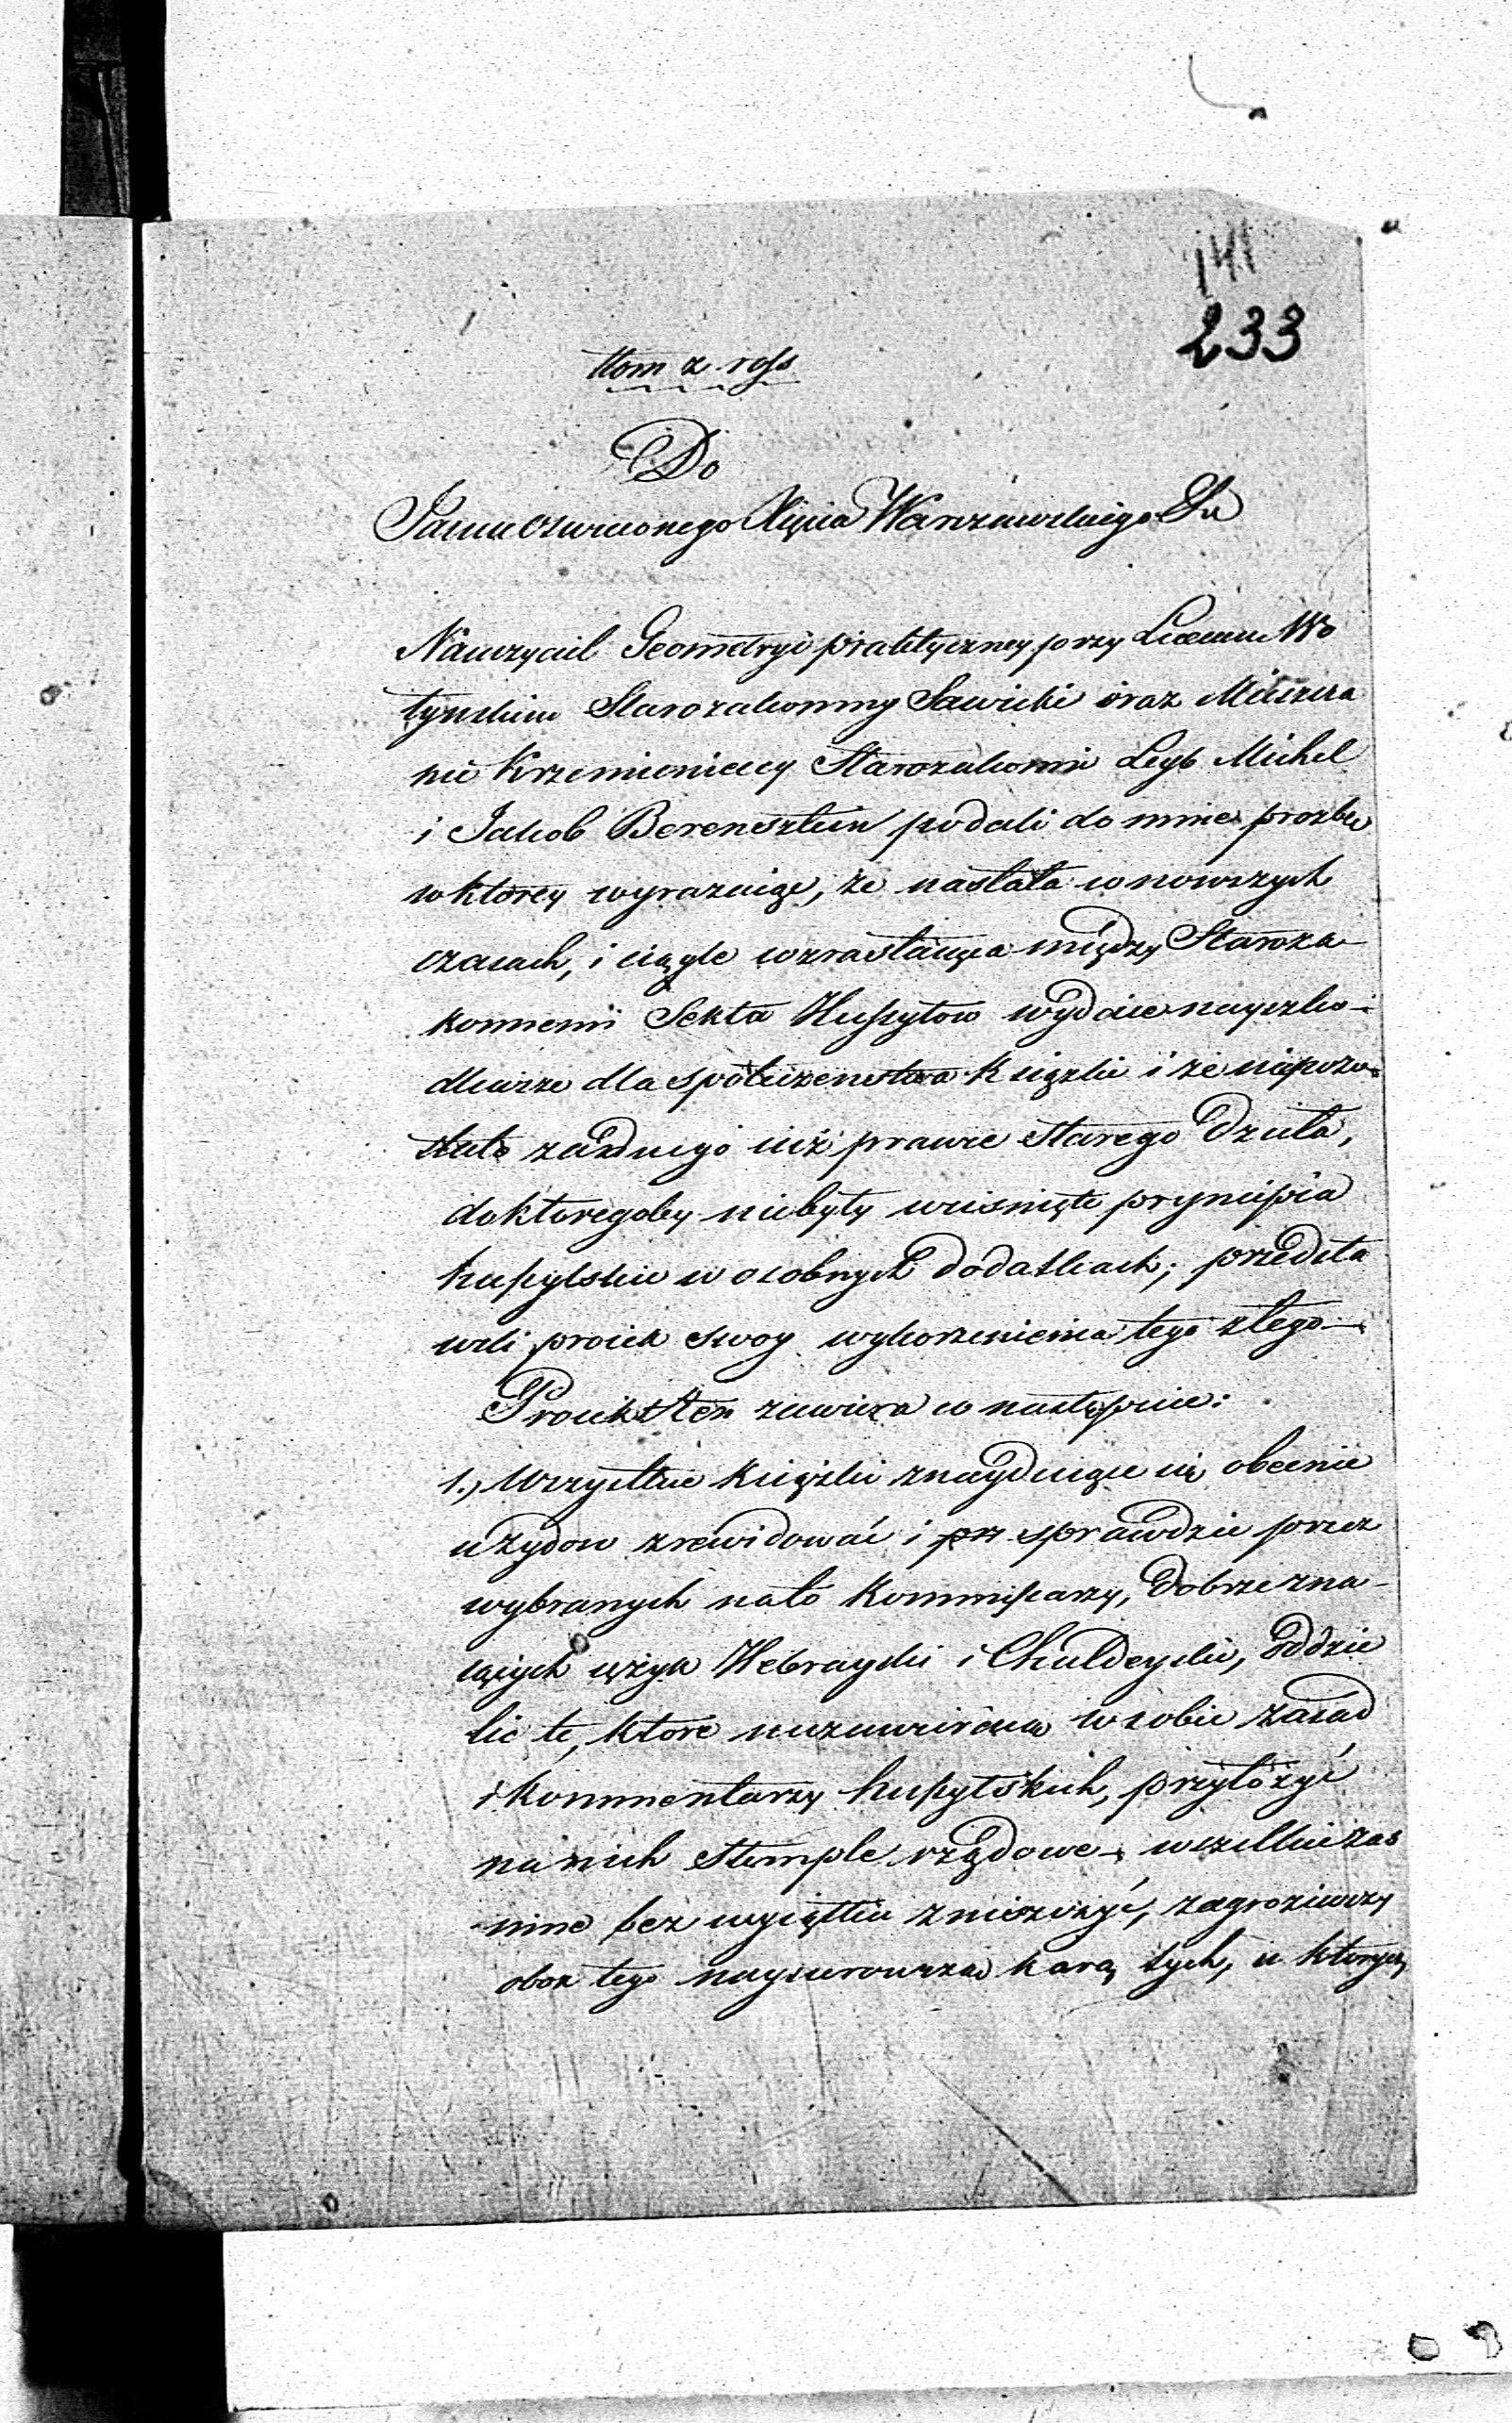 141
233
tłom z ross
Do
Jaśnie Oświeconego Xięcia Warszawskiego
Nauczyciel Geometryi praktyczney przy Liceum Wo
łyńskiem Starozakonny Sawicki oraz Mieszcza
nie Krzemienieccy Starozakonni Leyb Michel
i Jakob Berensztein podali do mnie prozbę
w ktorey wyrazaiąc, że nastała w nowszych
czasach, i ciągle wzrastaiąca między Staroza-
konnemi Sekta Hussytow wydaie nayszko-
dliwsze dla społeczenstwa Książki i że niepozo-
stało żadnego iuż prawie starego Dzieła,
do ktoregoby niebyły wcisnięte pryncipia
hussytskie w osobnych dodatkach; przedsta
wili proiekt swoy wykorzenienia tego złego
Proiekt ten zawiera co następuie:
1.) Wszystkie Książki znayduiące się obecnie
u Zydow zrewidować i prz sprawdzic przez
wybranych na to Kommissarzy, dobrze zna-
iących ięzyk Hebrayski i Chaldeyski, oddzie
lic te, ktore niezawieraią w sobie zasad
i Kommentarzy hussytskich, przyłożyć
na nich Stemple rządowe, wszelkie zas
inne bez wyiątku zniszczyć, zagroziwszy
obok tego naysurowszą karą tych, u ktorych